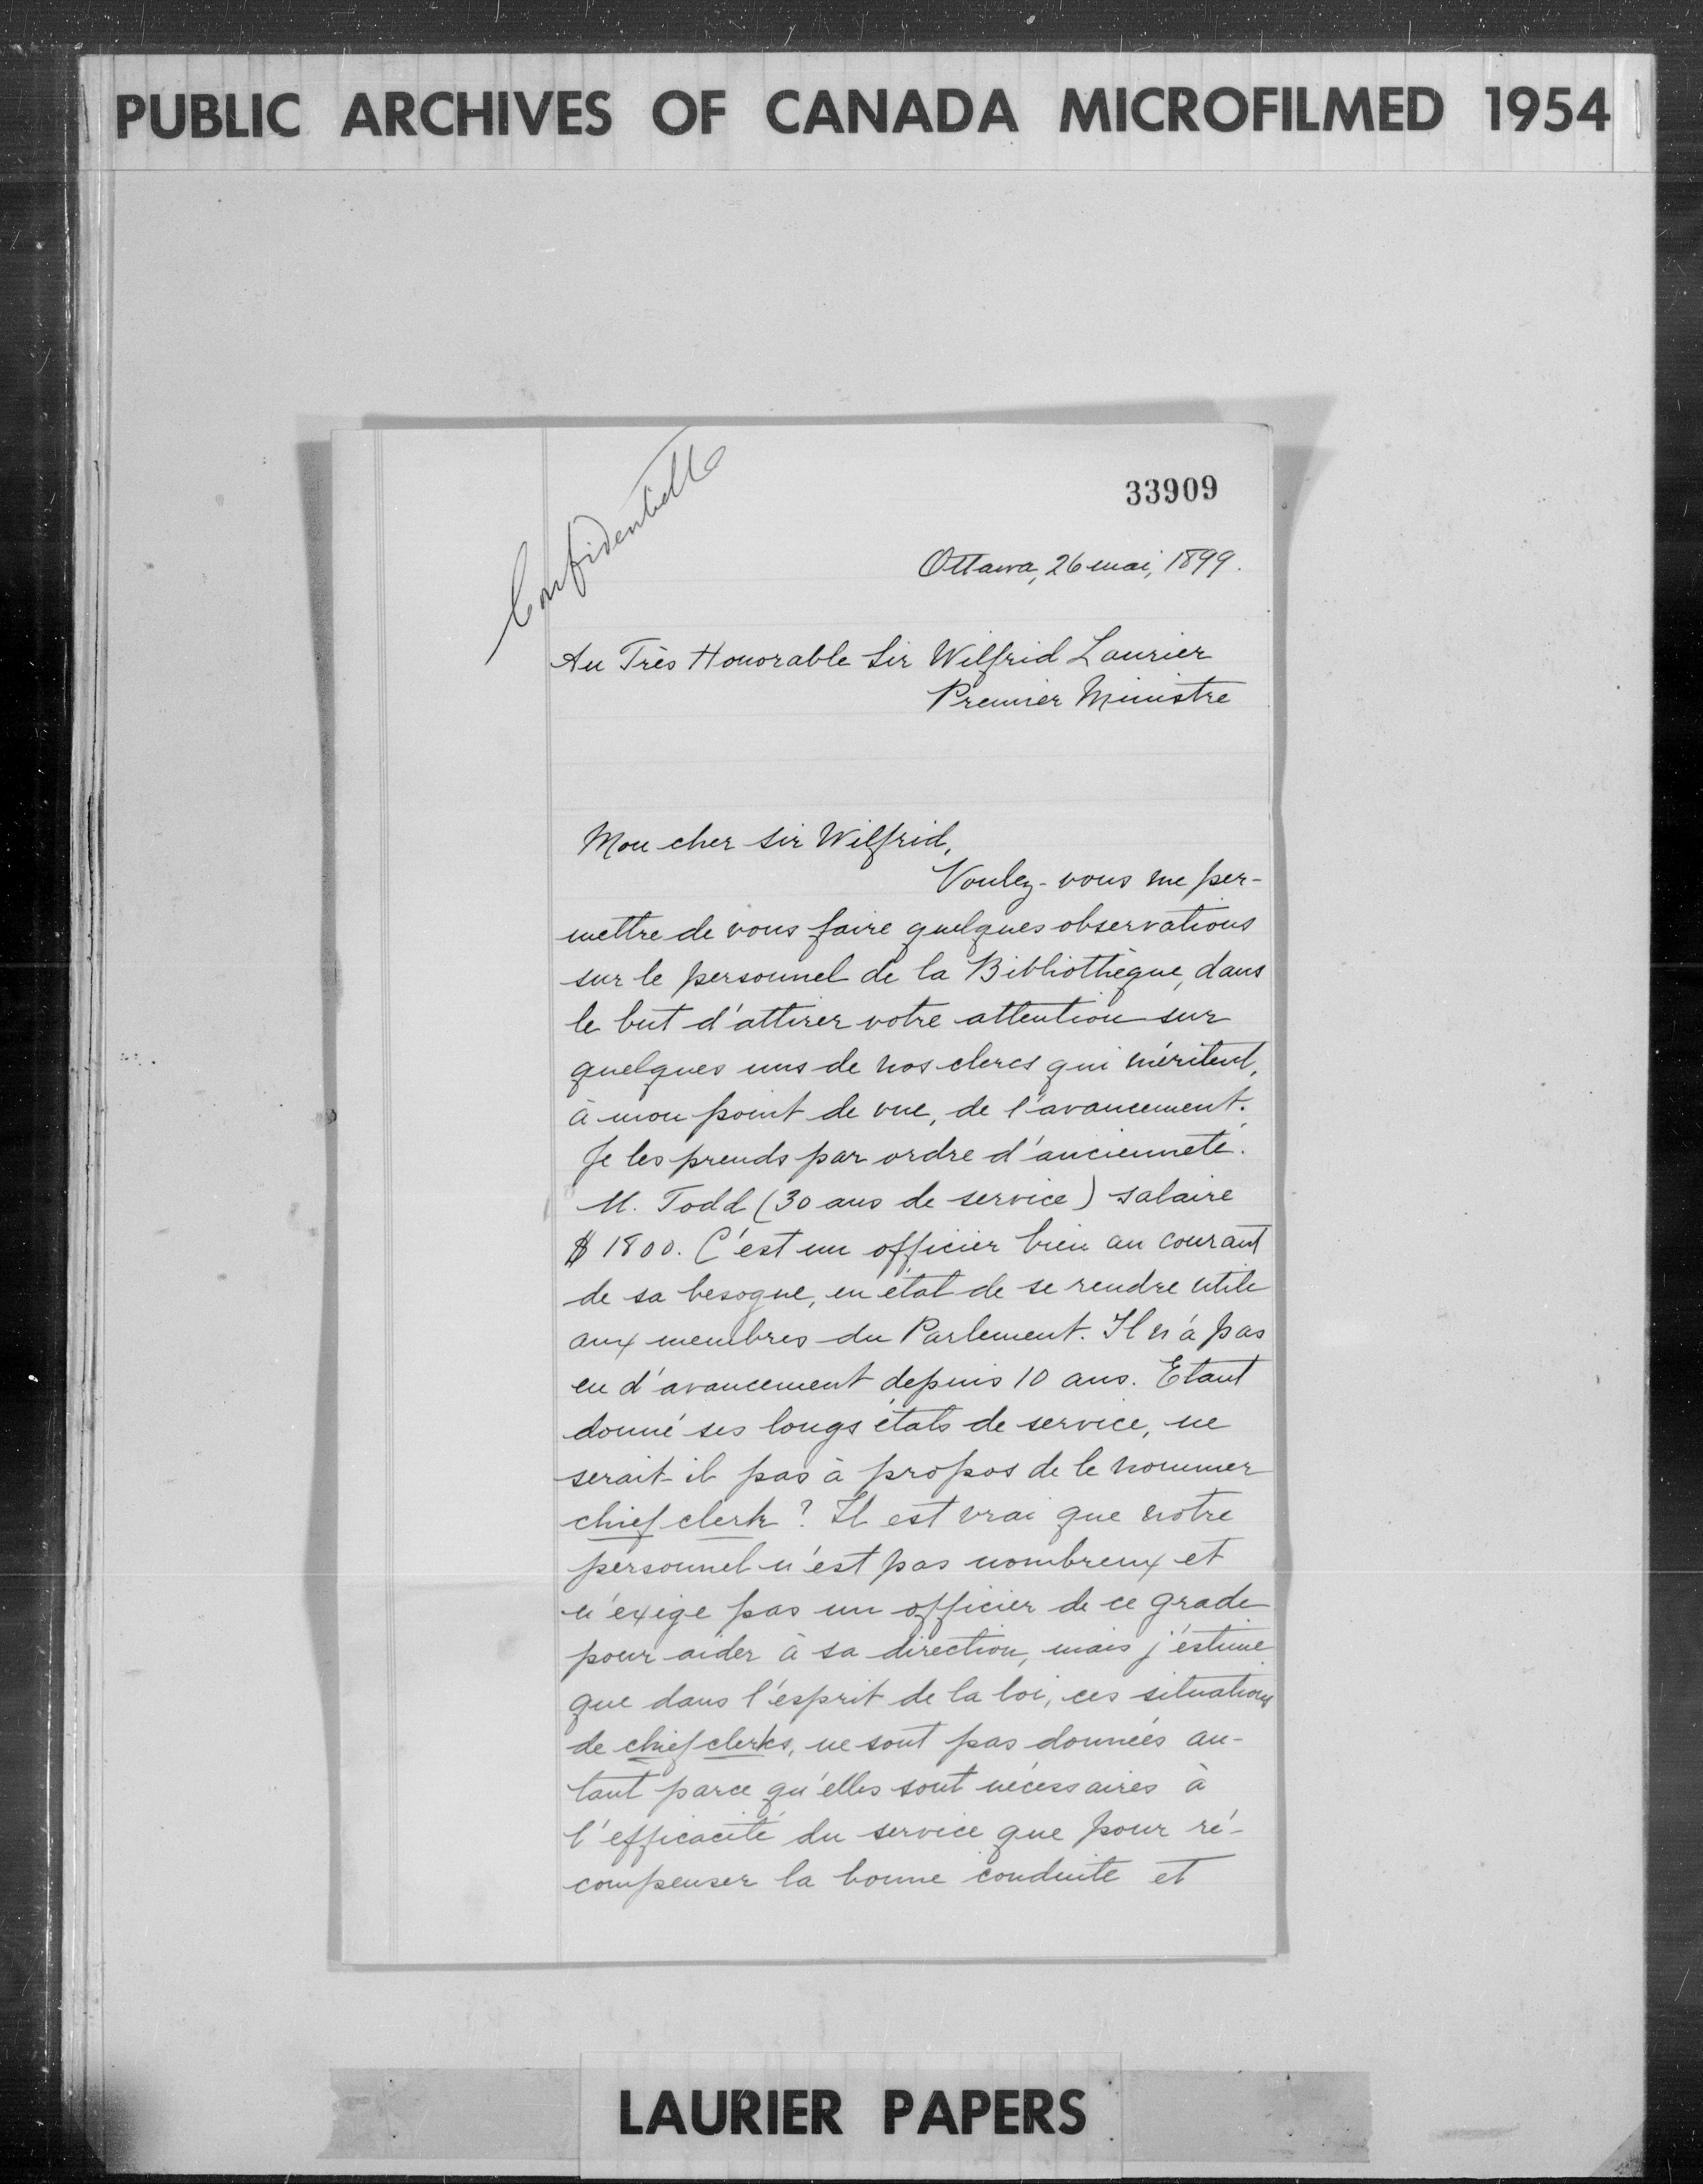 PUBLIC ARCHIVES OF CANADA MICROFILMED 1954
Confidentielle
33909
Ottawa, 26 mai, 1899.
Au Très Honorable Sir Wilfrid Laurier
Premier Ministre
Mon cher Sir Wilfrid,
Voulez-vous me per-
mettre de vous faire quelques observations
sur le personnel de la Bibliothèque, dans
le but d'attirer votre attention sur
quelques uns de nos clercs qui méritent,
à mon point de vue, de l'avancement.
Je les prends par ordre d'ancienneté.
M. Todd (30 ans de service) salaire
$1800. C'est un officier bien au courant
de sa besogne, en état de se rendre utile
aux membres du Parlement. Il n'a pas
eu d'avancement depuis 10 ans. Etant
donné ses longs états de service, ne
serait-il pas à propos de le nommer
chief clerk? Il est vrai que notre
personnel n'est pas nombreux et
n'exige pas un officier de ce grade
pour aider à sa direction, mais j'estime
que dans l'esprit de la loi, ces situations
de chief clerks, ne sont pas données au-
tant parce qu'elles sont nécessaires à
l'efficacité du service que pour ré-
compenser la bonne conduite et
LAURIER PAPERS